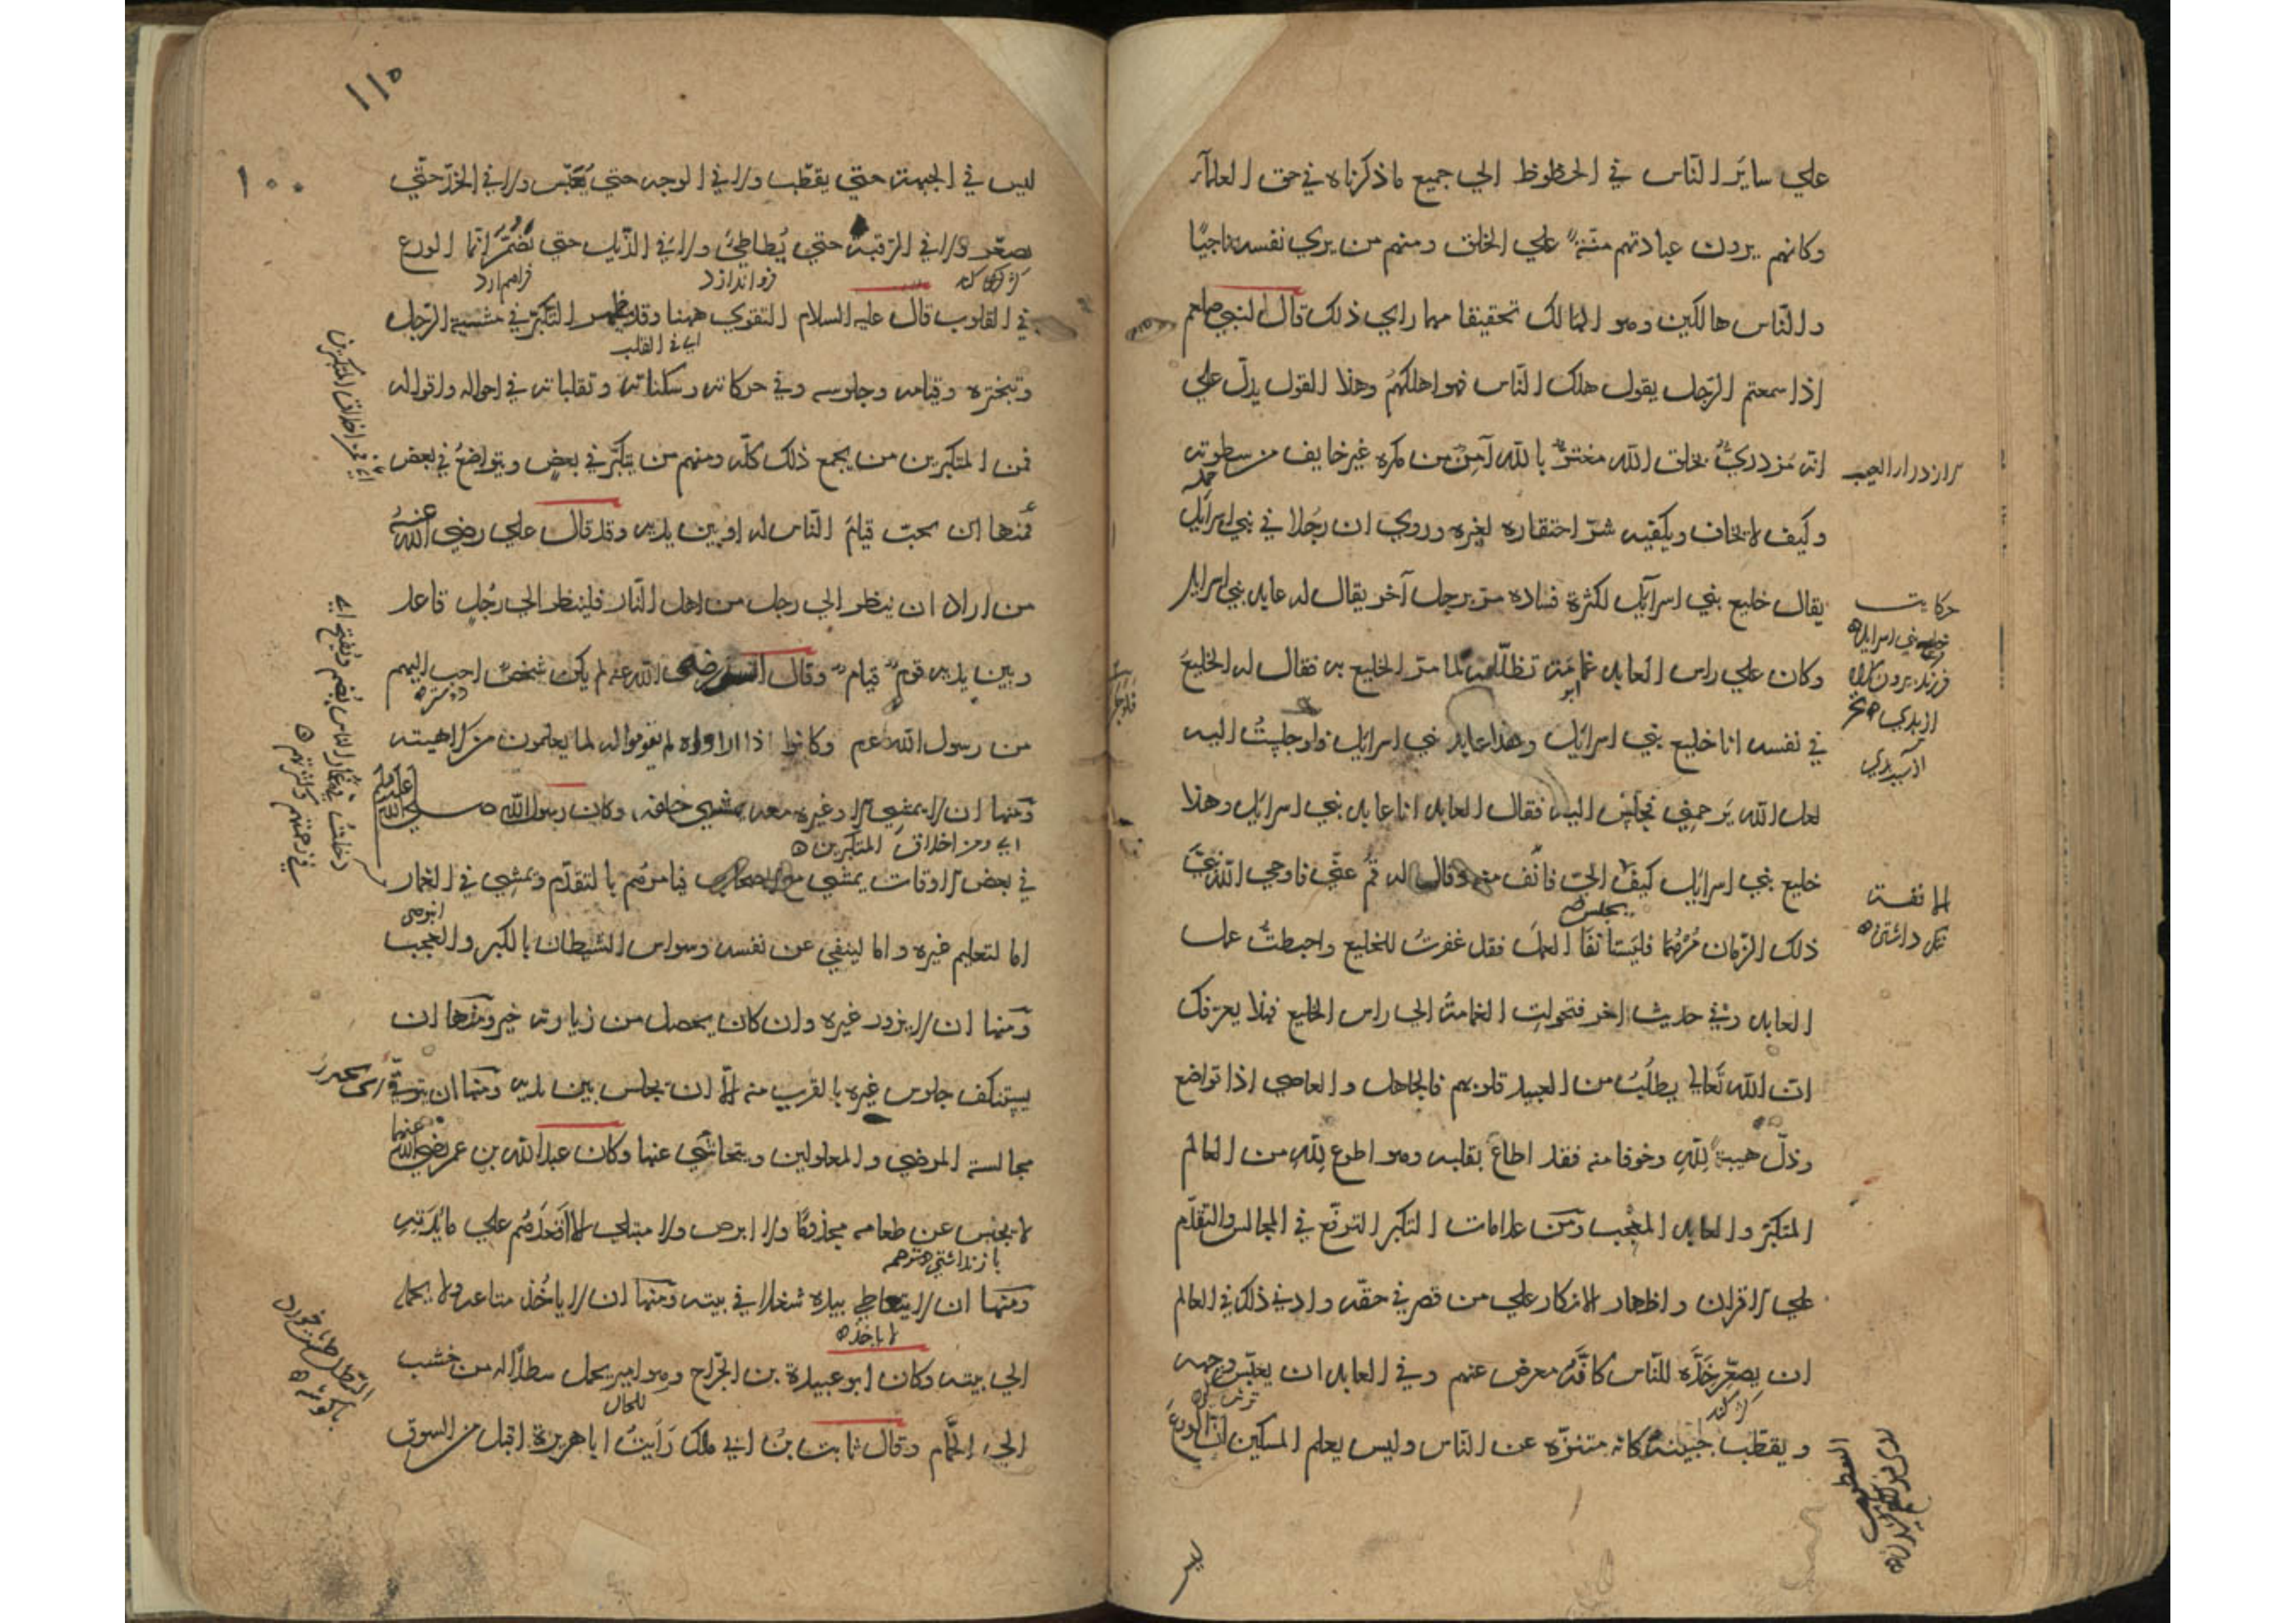 علي ساير الناس في الحظوظ الي جميع ما ذكرناه في حق العلمآء
وكانهم يردون عبادتهم منّةً علي الخلق ومنهم من يري نفسه ناجيًا
والنّاس هالكين وهو الهالك تحقيقا مهما راي ذلك قال النبي صلعم
اذا سمعتم الرّجل يقول هلك النّاس فهو اهلكهمُ وهذا القول يدلّ علي
انه مزدريٌ بخلق الله مغترٌّ بالله آمنٌ من مكره غير خايف من سطوته
وكيف لا يخاف ويكفيه شرّ احتقاره لغيره وروي ان رجُلا في بني اسرآئيل
يقال خليع بني اسرآئيل لكثرة فساده مرّ برجل آخر يقال له عابد بني اسرايل
وكان علي راس العابد غمامة تظلّله لما مرّ الخليع به فقال له الخليعُ
في نفسه انا خليع بني اسرائيل وهذا عابد بني اسرائيل فلوجلستُ اليه
لعل الله يَرحمني فجلس اليه فقال العابد انا عابد بني اسرائيل وهذا
خليع بني اسرائيل كيف الي فانف منه وقال له قم عنّي فاوحي الله
ذلك الزّمان مُرْهُما فليَستانفا العملَ فقد غفرتُ للخليع واحبطتُ عمل
العابد وفي حديث اخر فتحولت الغمامةُ الي راس الخليع فهذا يعرّفك
انّ الله تعالي يطلُبُ من العبيد قلوبهم فالجاهل والعاصي اذا تواضع
وذلّ هيبةً لِلّهِ وخوفا منه فقد اطاعَ بقلبه وهو اطوع لِلّهِ من العالم
المتكبّر والعابد المعجب ومن علامات التكبر الترفّع في المجالس والتقدّم
علي الاقران واظهار الانكار علي من قصر في حقّه وادني ذلك في العالم
ان يصعّر خدَّه للنّاس كانّه معرض عنهم وفي العابد ان يعبّس وجهه
ويقطّب جبينه كانه متنزّه عن النّاس وليس يعلم المسكين انّ الورعَ
حكايت
ليس
١١٥
١٠٠
ليس في الجبهة حتّي يقطّب ولا في الوجه حتي يُعَبّس ولا في الخدّ حتّي
يصعّر ولا في الرّقبة حتي يُطاطئ ولا في الذّيل حتي يُضمّ انّما الورع
فراهم ارد
فرو اندازد
في القلوب قال عليه السلام التقوي ههنا وقد ظهر التكبّر في مشية الرّجل
اي في القلب
وتبختره وقيامه وجلوسه وفي حركاته وسكناته وتقلباته في احواله واقواله
فمن المتكبرين من يجمع ذلك كلّه ومنهم من يتكبّر في بعضٍ ويتواضعُ في بعض
فمنها ان يحبّ قيامَ النّاس له او بين يديه وقد قال علي رضي الله عنه
من اراد ان ينظر الي رجل من اهل النّار فلينظر الي رجُلٍ قاعد
وبين يديه قوم قيام وقال انس رضي الله عنه لم يكن شخصٌ احب اليهم
من رسول الله عم وكانوا اذا راوه لم يقوموا له لما يعلمون من كراهيته
ومنها ان لا يمشي الا وغيره معه يمشي خلفه، وكان رسول الله صلي الله عليه
اي ومن اخلاق المتكبرين
في بعض الاوقات يمشي مع الاصحاب فيامرهُم بالتقدّم ويمشي في الغمار
اما لتعليم غيره واما لينفي عن نفسه وسواس الشيطان بالكبر والعجب
ومنها ان لا يزور غيره وان كان يحصل من زيارته خير ومنها ان
يستنكف جلوس غيره بالقرب منه الّا ان يجلس بين يديه ومنها ان يتوقّي
مجالسة المرضي والمعلولين ويتحاشي عنها وكان عبد الله بن عمر رضي الله عنهما
لا يحبس عن طعامه مجذومًا ولا ابرص ولا مبتلي الا اقعدَهُم علي مائدته
ومنها ان لا يتعاطي بيده شغلا في بيته ومنها ان لا ياخُذ متاعه ولا يحمله
لا ياخذ
الي بيته وكان ابو عبيدة بن الجرّاح وهو امير يحمل سطلًا له من خشب
للحال
الي الحمّام وقال ثابت بنُ ابي ملك رَايتُ ابا هريرة اقبل من السوق
اي من اخلاق المتكبرين